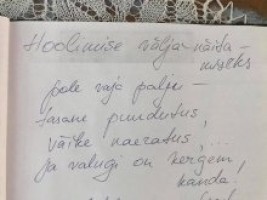 Hoolimise välja näita-
miseks
pole vaja palju –
tasane puudutus,
väike naeratus, ...
Ja valugi on kergem
kanda!